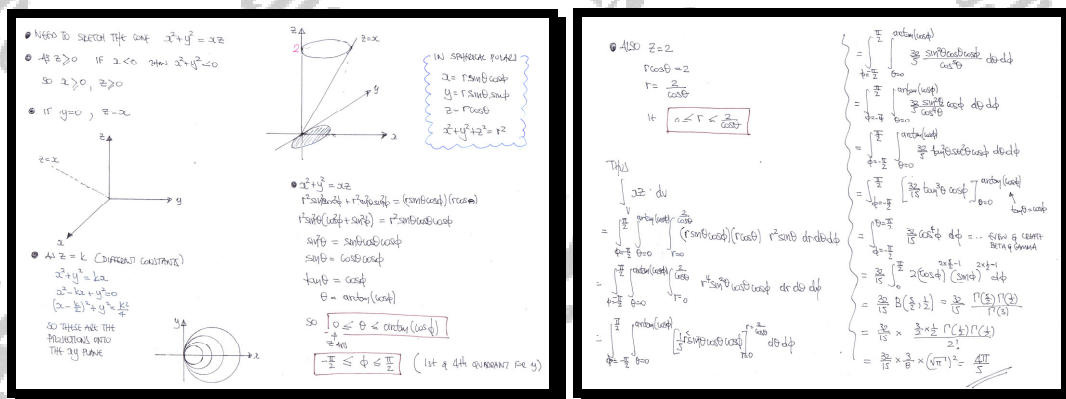 NEED TO SKETCH THE CONE x²+y² = xz
AS z≥0 IF x<0 THEN x²+y²<0
SO x≥0, z≥0
IF y=0, z=x
z
z=x
y
x
AS z = k (DIFFERENT CONSTANTS)
x²+y² = kx
x²-kx+y²=0
(x-k/2)²+y²=k²/4
SO THESE ARE THE
PROJECTIONS ONTO
THE xy PLANE
y
x
z
2
z=x
y
x
IN SPHERICAL POLARS
x= rsinθcosϕ
y= rsinθsinϕ
z= rcosθ
x²+y²+z²=r²
x²+y² = xz
r²sin²θcos²ϕ + r²sin²θsin²ϕ = (rsinθcosϕ)(rcosθ)
r²sin²θ(cos²ϕ+sin²ϕ) = r²sinθcosθcosϕ
sin²θ = sinθcosθcosϕ
sinθ = cosθcosϕ
tanθ = cosϕ
θ = arctan(cosϕ)
SO 0 ≤ θ ≤ arctan(cosϕ)
z AXIS
-π/2 ≤ ϕ ≤ π/2 (1st & 4th QUADRANT FOR y)
ALSO z=2
rcosθ=2
r= 2/cosθ
IE 0 ≤ r ≤ 2/cosθ
THUS
∫_V xz dv
= ∫_{ϕ=-π/2}^{π/2} ∫_{θ=0}^{arctan(cosϕ)} ∫_{r=0}^{2/cosθ} (rsinθcosϕ)(rcosθ) r²sinθ drdθdϕ
= ∫_{ϕ=-π/2}^{π/2} ∫_{θ=0}^{arctan(cosϕ)} ∫_{r=0}^{2/cosθ} r⁴sin²θcosθcosϕ dr dθ dϕ
= ∫_{ϕ=-π/2}^{π/2} ∫_{θ=0}^{arctan(cosϕ)} [1/5 r⁵sin²θcosθcosϕ]_{r=0}^{r=2/cosθ} dθ dϕ
= ∫_{ϕ=-π/2}^{π/2} ∫_{θ=0}^{arctan(cosϕ)} 32/5 sin²θcosθcosϕ/cos⁵θ dθdϕ
= ∫_{ϕ=-π/2}^{π/2} ∫_{θ=0}^{arctan(cosϕ)} 32/5 sin²θ/cos⁴θ cosϕ dθ dϕ
= ∫_{ϕ=-π/2}^{π/2} ∫_{θ=0}^{arctan(cosϕ)} 32/5 tan²θsec²θcosϕ dθdϕ
= ∫_{ϕ=-π/2}^{π/2} [32/15 tan³θ cosϕ]_{θ=0}^{arctan(cosϕ)} dϕ
tanθ=cosϕ
= ∫_{ϕ=-π/2}^{θ=π/2} 32/15 cos⁴ϕ dϕ = ... EVEN & CREATE
BETA & GAMMA
= 32/15 ∫_0^{π/2} 2(cosϕ)^{2×5/2-1}(sinϕ)^{2×1/2-1} dϕ
= 32/15 B(5/2,1/2) = 32/15 Γ(5/2)Γ(1/2)/Γ(3)
= 32/15 × 3/2×1/2 Γ(1/2)Γ(1/2)/2!
= 32/15 × 3/8 × (√π)² = 4π/5